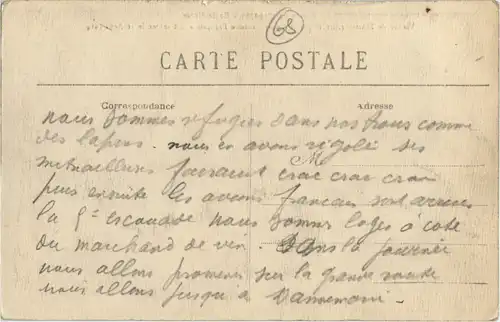 68
CARTE POSTALE
Correspondance
Adresse
nous sommes refugies dans nos trous comme
des lapins. nous en avons rigolé des
mitrailleuses faisaient crac crac crac
puis ensuite les avions francais sont arrives
la 5e escouade nous sommes loges à coté
du marchand de vin. Dans la journée
nous allons promener sur la grande route
nous allons jusqu'a